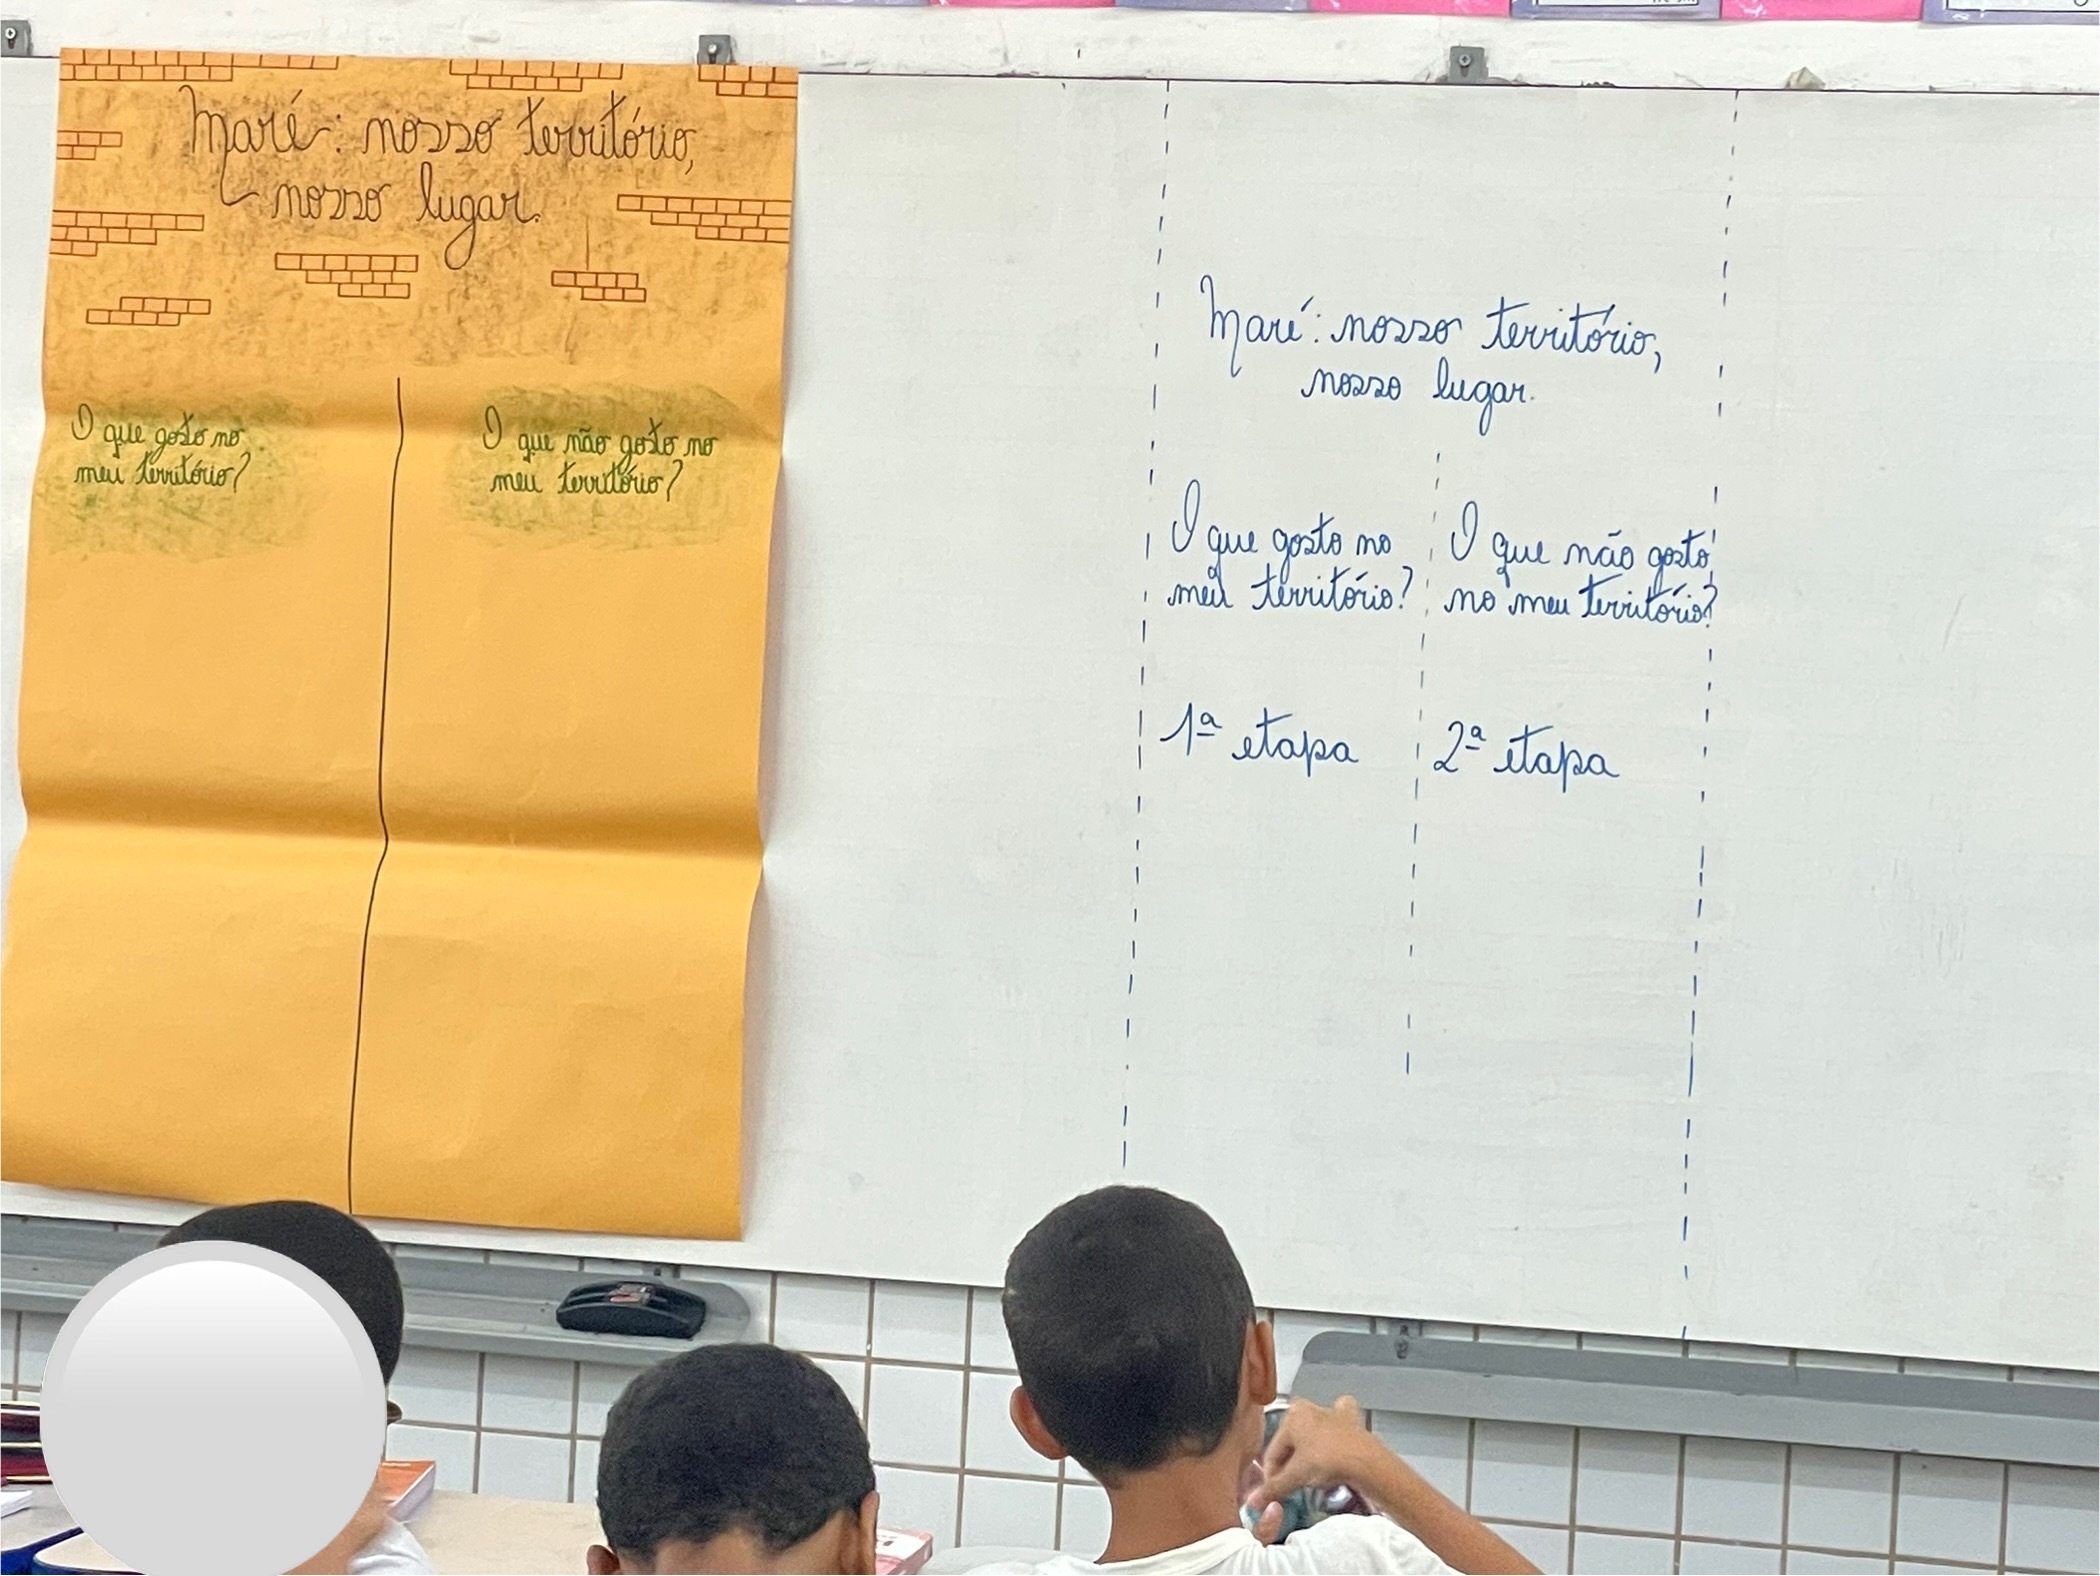 Maré: nosso território,
nosso lugar.
O que gosto no
meu território?
O que não gosto no
meu território?
Maré: nosso território,
nosso lugar.
O que gosto no
meu território?
O que não gosto
no meu território?
1ª etapa
2ª etapa